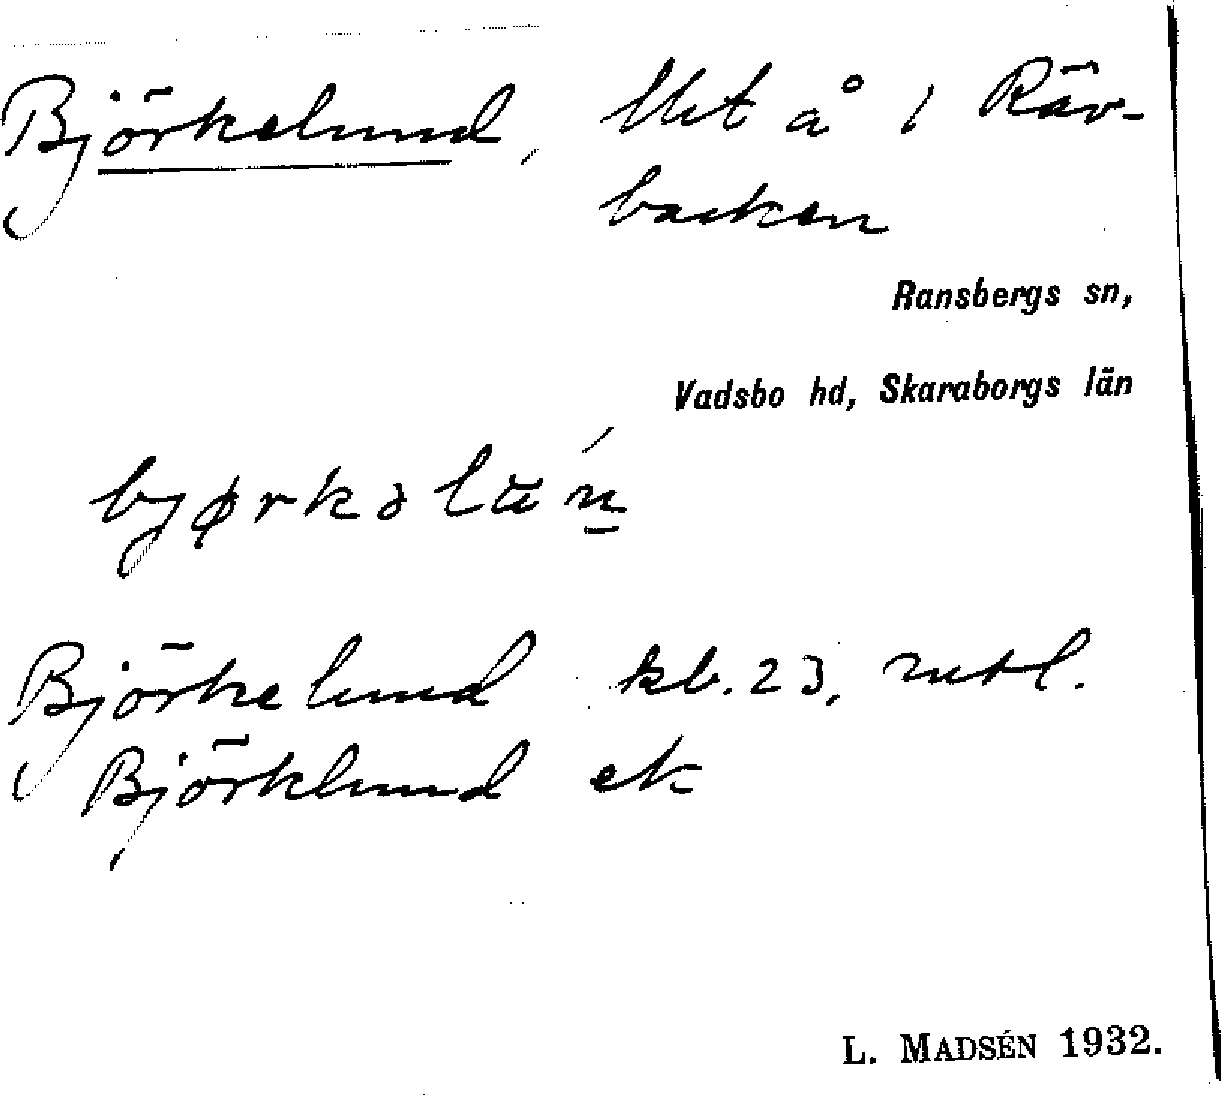 Björkelund, lht å 1 Räv-
backen
Ransbergs sn,
Vadsbo hd, Skaraborgs län
bjørkəlun̲
Björkelund kb. 23, mtl.
Björklund ek
L. MADSÉN 1932.